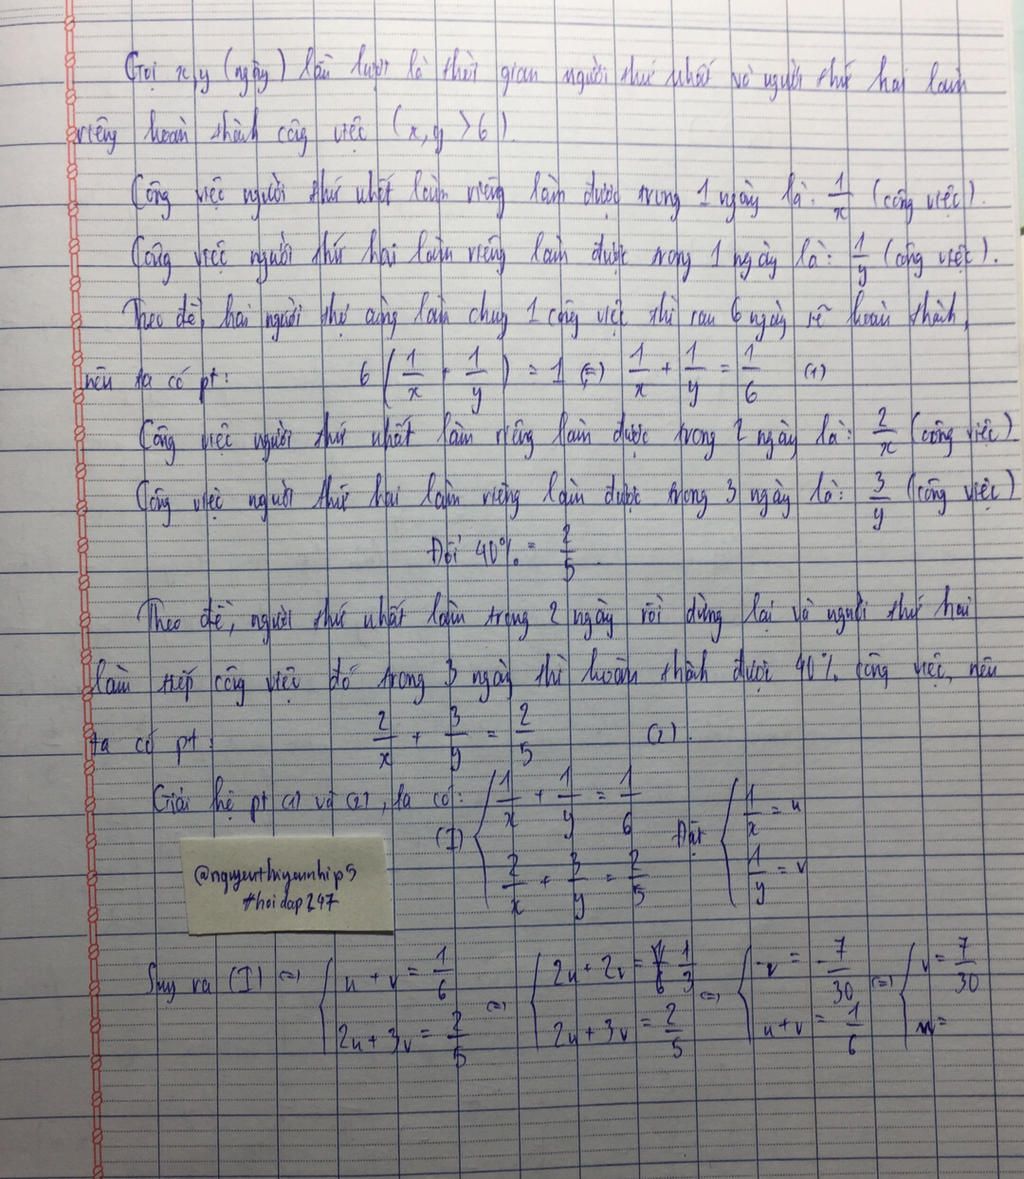 Gọi x,y (ngày) lần lượt là thời gian người thứ nhất và người thứ hai làm
riêng hoàn thành công việc (x,y >6).
Công việc người thứ nhất làm riêng làm được trong 1 ngày là: 1/x (công việc).
Công việc người thứ hai làm riêng làm được trong 1 ngày là: 1/y (công việc).
Theo đề, hai người thợ cùng làm chung 1 công việc thì sau 6 ngày sẽ hoàn thành,
nên ta có pt: 6 (1/x + 1/y) = 1 (=) 1/x + 1/y = 1/6 (1)
Công việc người thứ nhất làm riêng làm được trong 2 ngày là: 2/x (công việc)
Công việc người thứ hai làm riêng làm được trong 3 ngày là: 3/y (công việc)
Đổi 40% = 2/5
Theo đề, người thứ nhất làm trong 2 ngày rồi dừng lại và người thứ hai
làm tiếp công việc đó trong 3 ngày thì hoàn thành được 40% công việc, nên
ta có pt: 2/x + 3/y = 2/5 (2).
Giải hệ pt (1) và (2), ta có: (I) { 1/x + 1/y = 1/6 Đặt { 1/x = u
2/x + 3/y = 2/5 1/y = v
@nguyenthiyennhip5
#hoidap247
Suy ra (I) (=) { u + v = 1/6 (=) { 2u + 2v = 1/3 (=) { -v = -7/30 (=) { v = 7/30
2u + 3v = 2/5 2u + 3v = 2/5 u + v = 1/6 u =